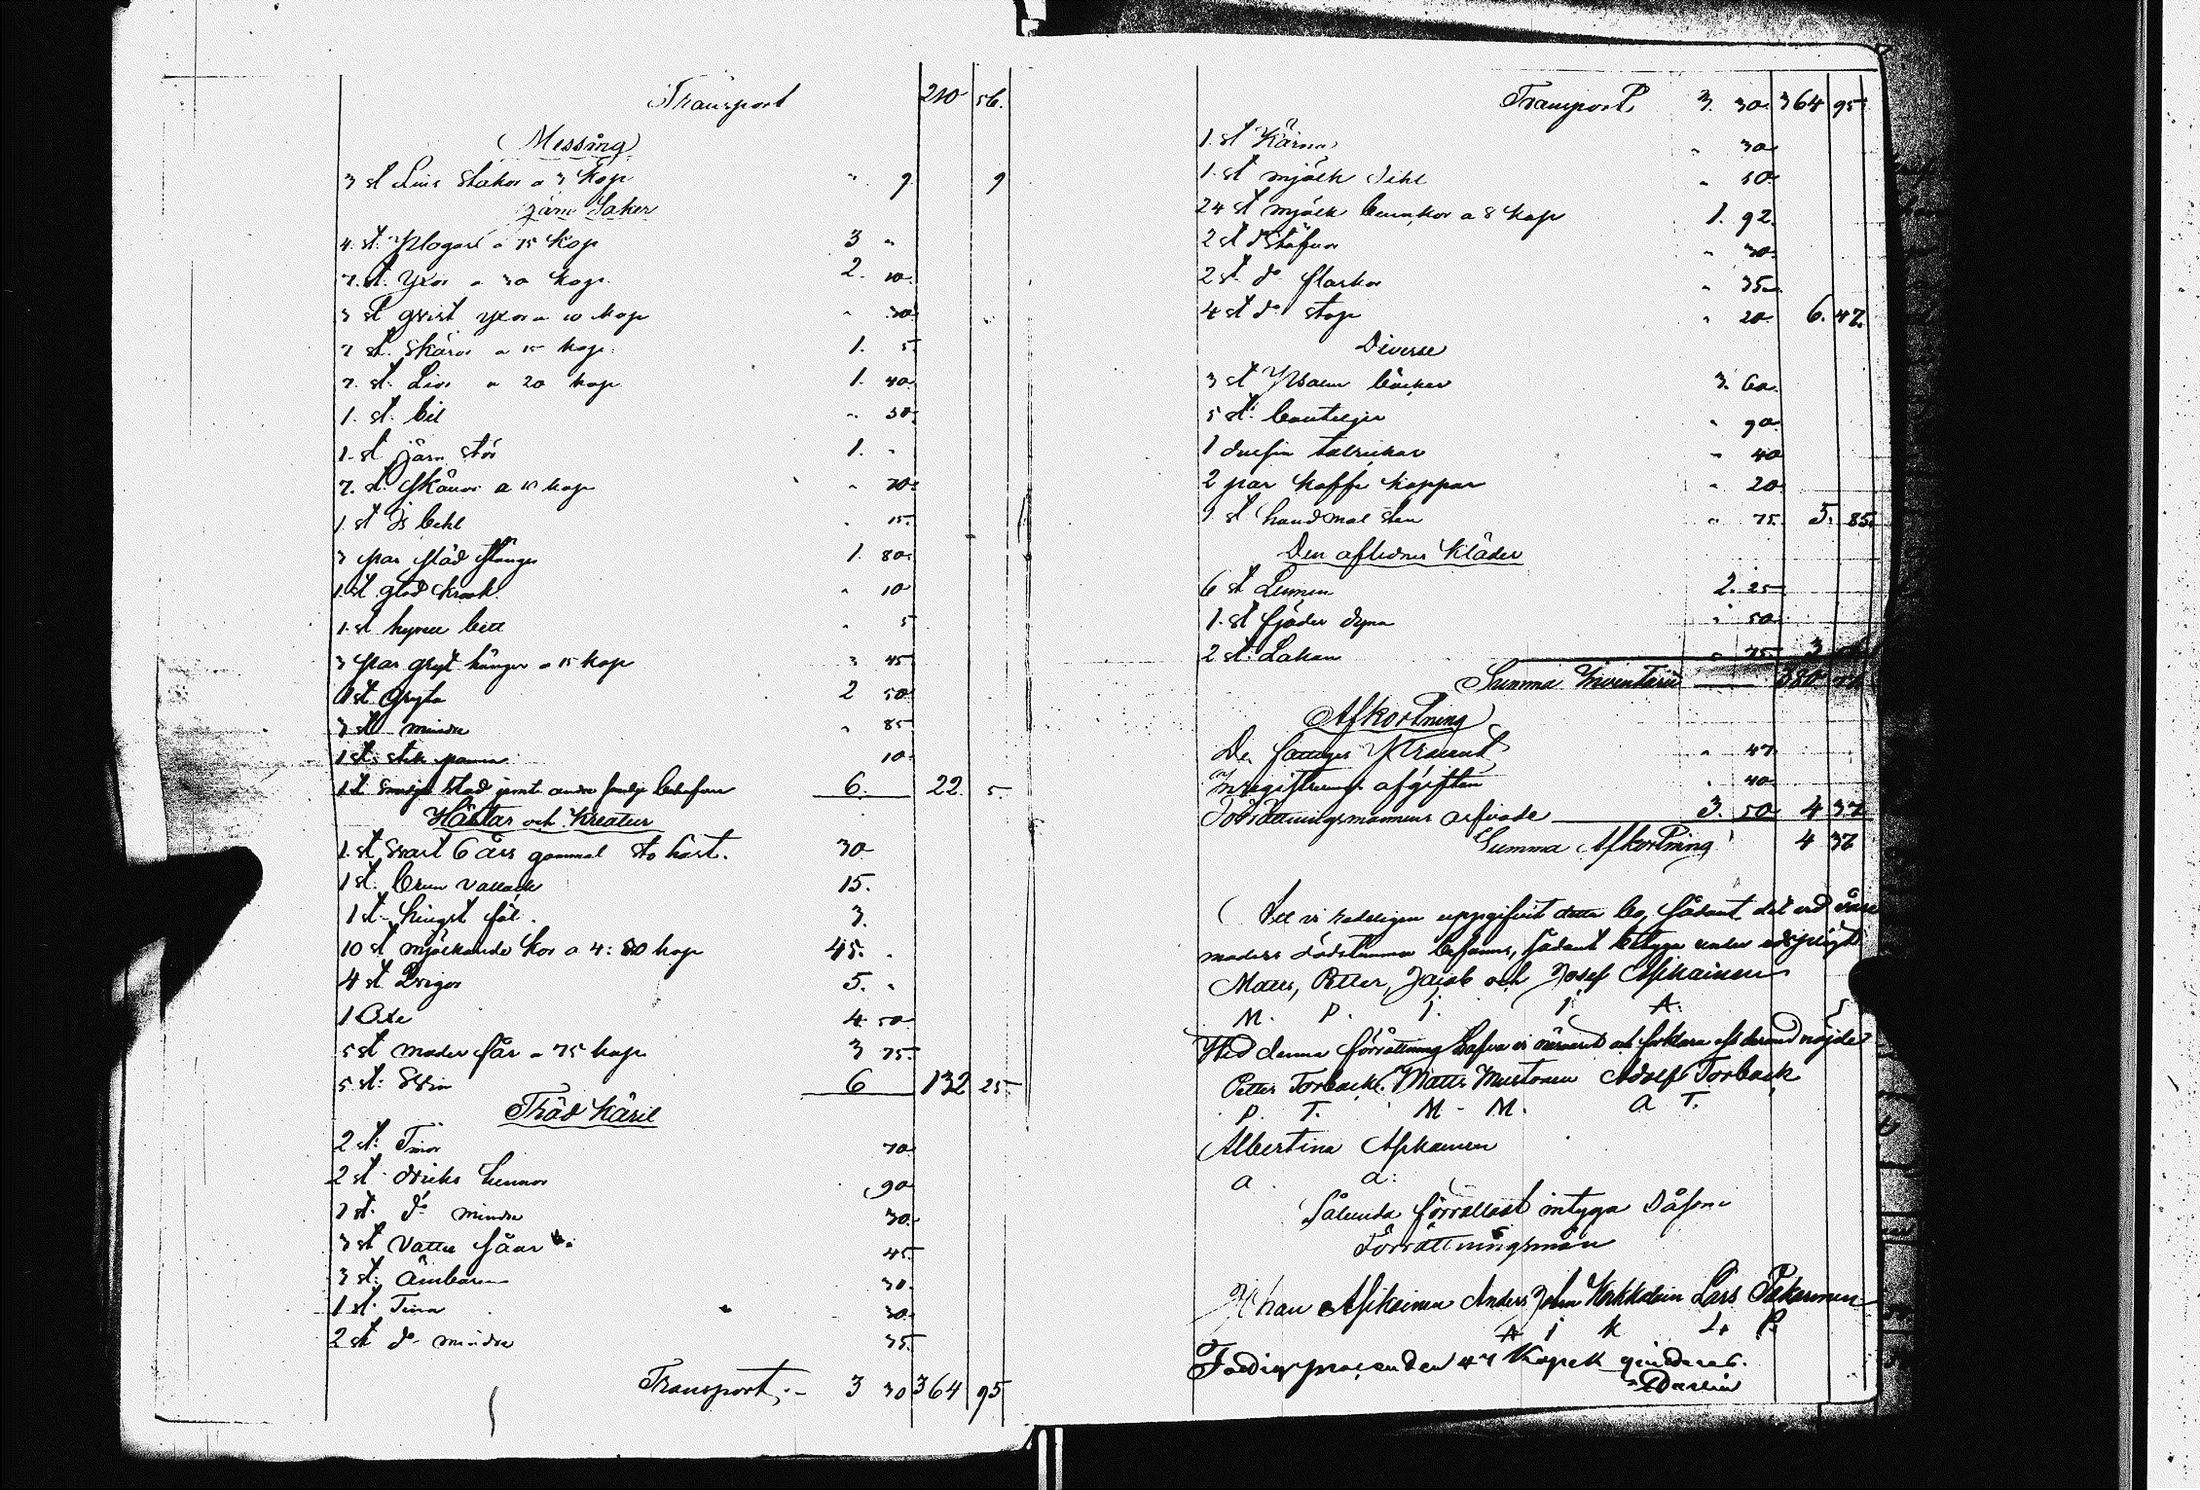 Transport 210 56.
Messing
3 st Lius stakor a 3 Kop " 9. 9
Järn Saker
4. st. Plogar a 75 Kop 3 "
7. st. Yxor a 30 Kop. 2. 10.
3 st qvist yxor a 10 Kop " 30.
7 st. Skäror a 15 Kop. 1. 5.
7. st. Liar a 20 Kop 1. 40.
1. st. bil " 50.
1. st järn stör 1. "
7. st. Skäror a 10 Kop " 70.
1 st Is bihl " 15.
3 par stänger 1. 80.
1. st glöd krok " 10
1. st betl " 5
3 par gryt hänger a 15 Kop " 45
1 st Gryta 2 50
3 st mindre " 85
1 st. stek panna 10.
1 st. Smidje städ jemte andra 6. 22. 5.
Hästar och Kreatur
1. st Svart 6 års gammal sto häst. 30
1 st. brun vallack 15.
1 st. hingst föl. 3.
10 st mjölkande kor a 4: 50 kop 45. "
4 st Qvigor 5. "
1 Oxe 4. 50
5 st moder får a 75 kop 3 75.
5 st: Svin 6 132 25
Träd Käril
2 st: Tinor 70
2 st. dricks tunnor 90
1 st. d:o mindre 30.
3 st Vatten såar 45
3 st. Ämbaren 30.
1 st. Tina 30.
2 st d:o mindre 35.
Transport. 3 30 364 95
Transport. 3. 30. 364 95
1. st Kärna " 30
1. st mjölk " 10.
24 st mjölk bunkor a 8 kop 1. 92.
2 st Stäfvor " 30.
2 st. d:o flaskor " 35
4 st d:o stop " 20. 6. 47.
Diverse
3 st Psalm böcker 3. 60.
5 st: bouteljer " 90
1 dussin talrickar " 40
2 par kaffe koppar " 20.
1 st hand mal sten " 75. 5. 85.
Den aflidnes Kläder
6 st Linnen 2. 25
1. st fjäder dyna " 50
2 st. Lakan " 75 3
Summa Inventarii 380
Afkortning
De fattiges Procent " 47
Inregistrerings afgiften " 40
Förrättningsmännens arfvode 3. 50 4 37
Summa Afkortning 4 37
Att vi redeligen uppgifvit detta bo, sådant det vid våre
moders dödstimma befanns, sådant betyga under edsplikt
Matts, Petter, Jacob och Josef Asikainen
M. P. J. J. A.
Wid denna förrättning hafva vi närvarit och förklara oss dermed nöjde
Petter Torback. Matts Mustonen Adolf Torback
P. T. M. M. A T.
Albertina Asikainen
A. A.
Sålunda förrättadt intyga Såsom
Förrättningsmän
Johan Asikainen Anders John Lars Pakarinen
A J K L. P.
Fattigprocenten 47 Kopek qvitteras.